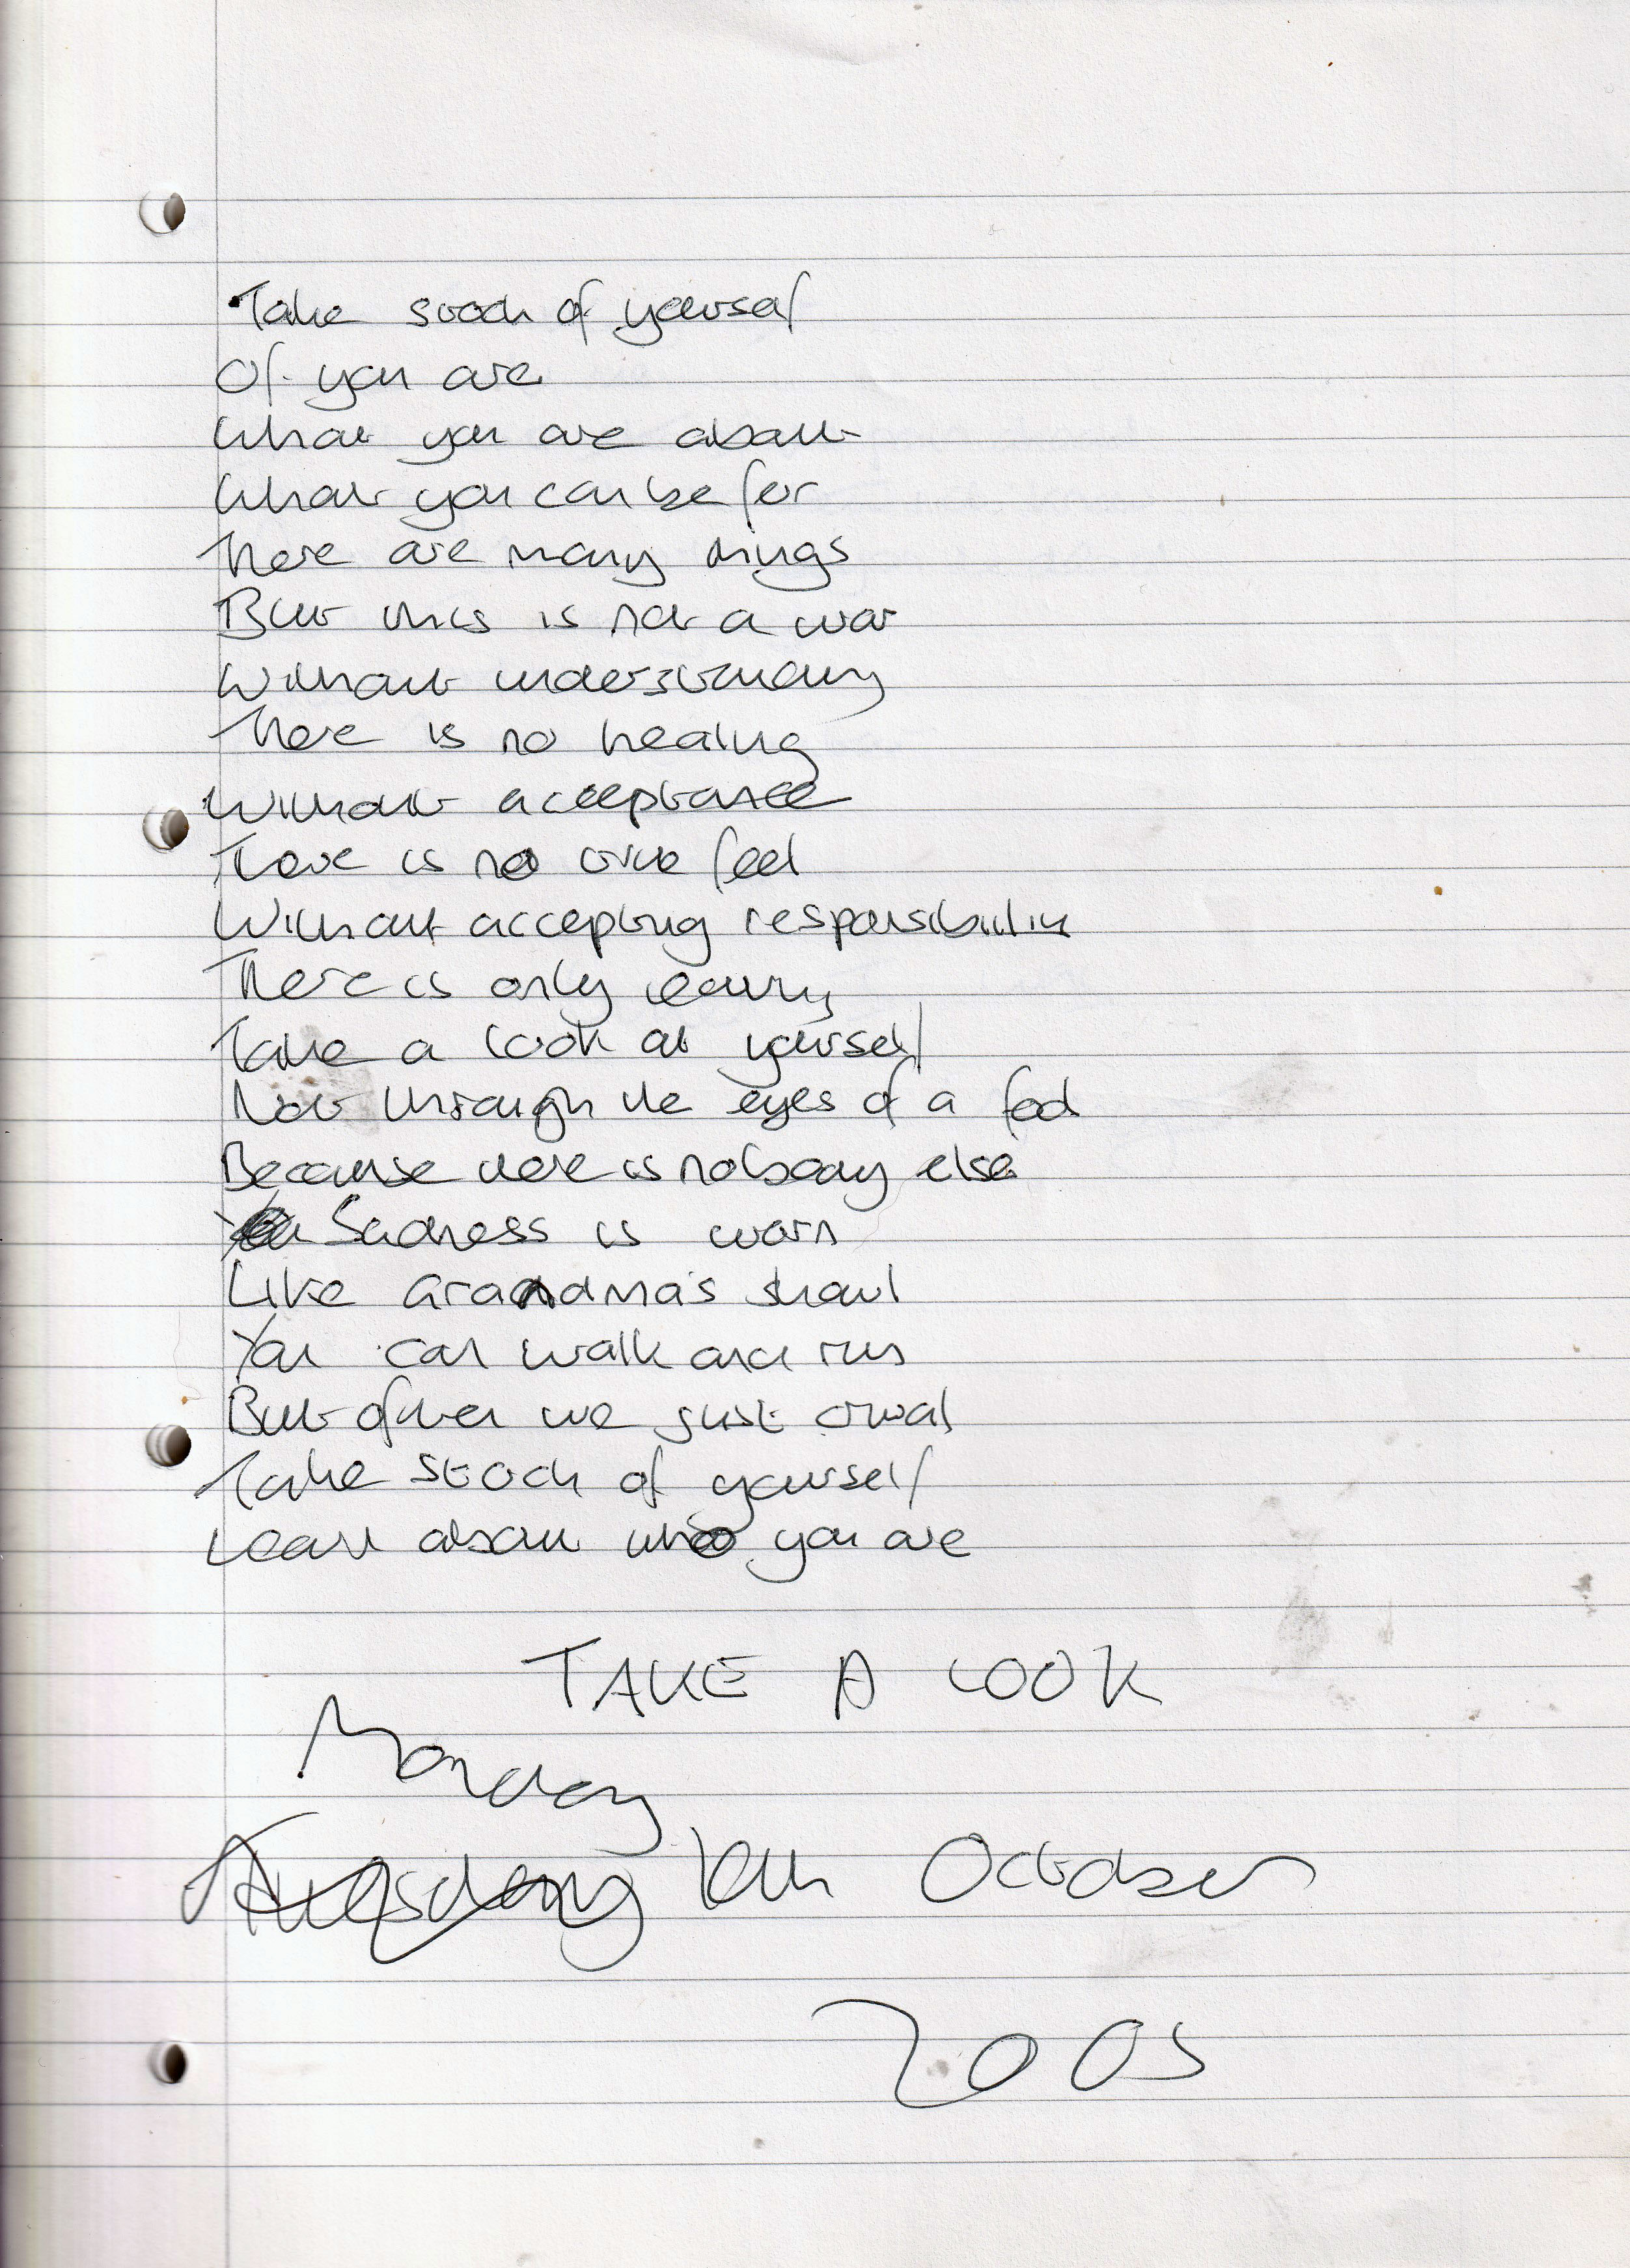 Take stock of yourself
Of you are
What you are about
What you can be for
There are many things
But this is not a war
Without understanding
There is no healing
Without acceptance
There is no true feel
Without accepting responsibility
There is only
Take a look at yourself
Not through the eyes of a fool
Because there is nobody else
Sadness is worn
Like Grandma's shawl
You can walk and run
But often we just crawl
Take stock of yourself
Learn about who you are
TAKE A LOOK
Monday
Tuesday 10th October
2005